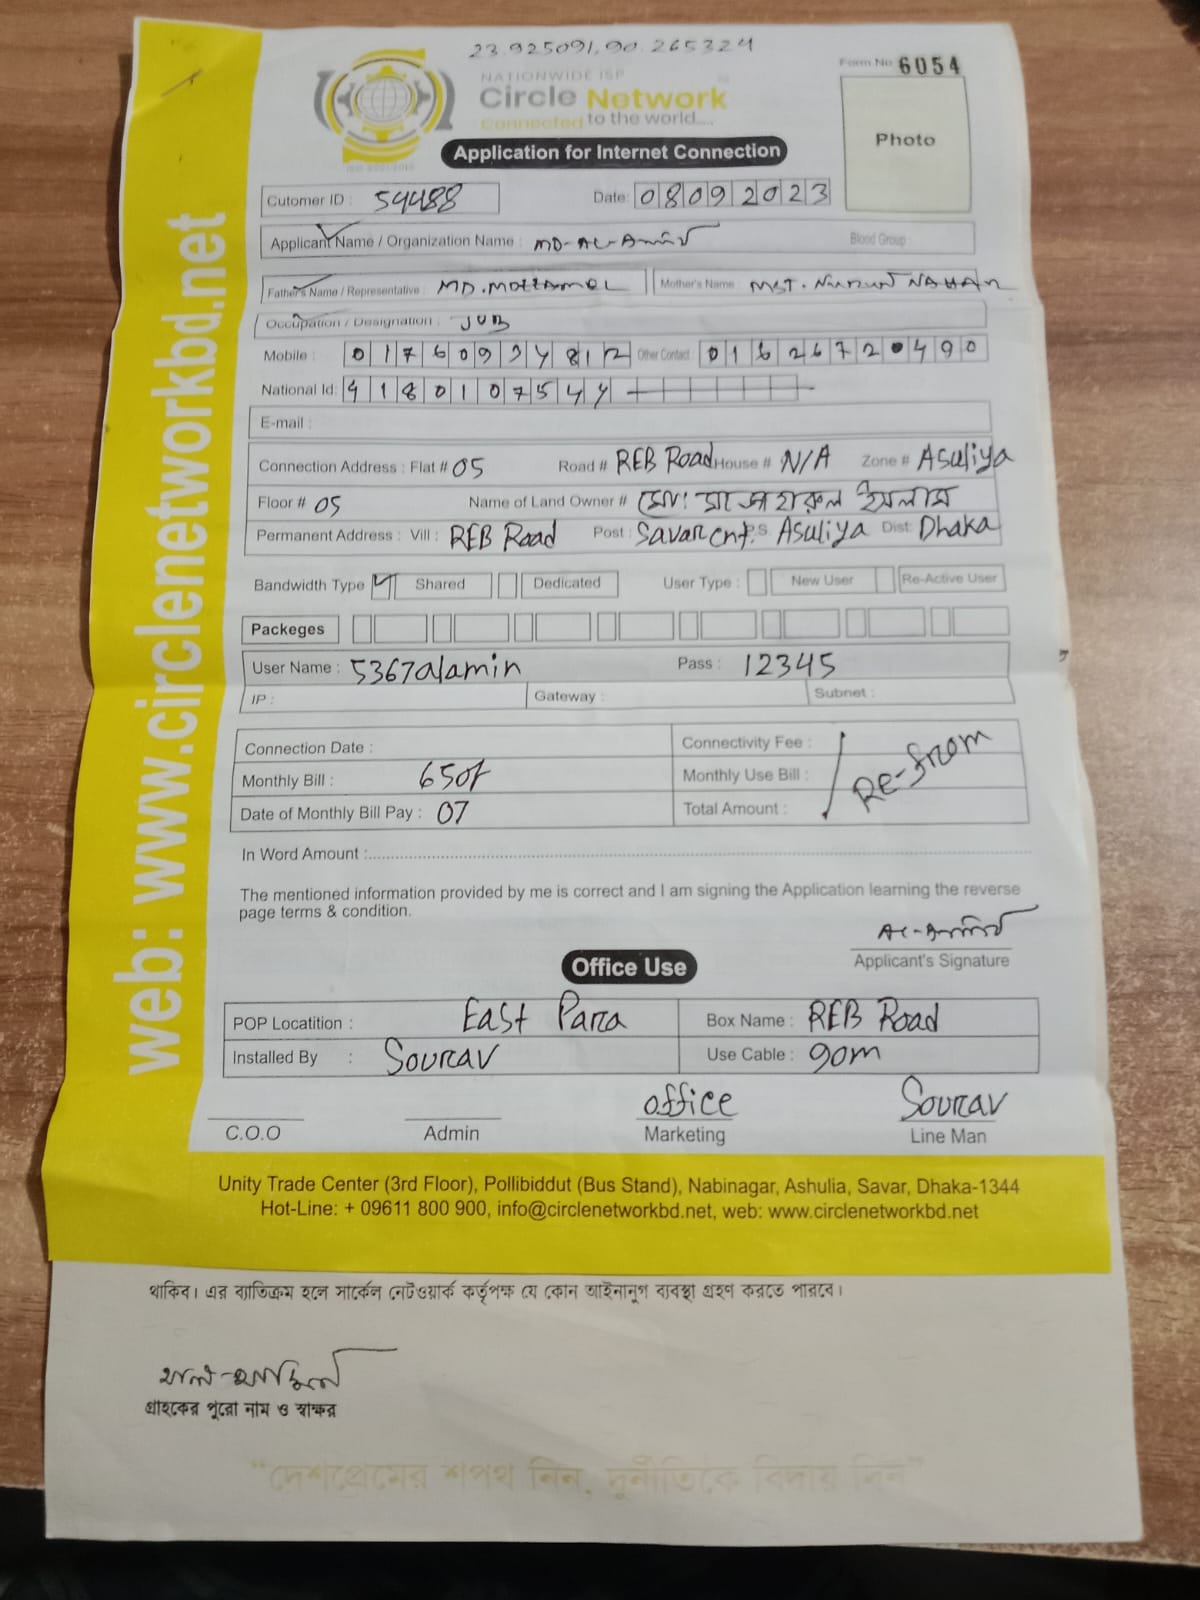 23.925091,90.265324
Form No 6054
NATIONWIDE ISP
Circle Network
Connected to the world....
Photo
Application for Internet Connection
Cutomer ID : 54488 Date: 08092023
Applicant Name / Organization Name : MD-AL-Amin Blood Group :
Father's Name / Representative : MD. MOZZAMEL Mother's Name : MST. Nurun NAHAR
Occupation / Designation : JOB
Mobile : Other Contact : 01626720490
National Id:
E-mail :
Connection Address : Flat # 05 Road # REB Road House # N/A Zone # Asuliya
Floor # 05 Name of Land Owner # মো: মাজহারুল ইসলাম
Permanent Address : Vill : REB Road Post : Savar Cnt P.S Asuliya Dist: Dhaka
Bandwidth Type Shared Dedicated User Type : New User Re-Active User
Packeges
User Name : 5367alamin Pass : 12345
IP : Gateway : Subnet :
Connection Date : Connectivity Fee :
Monthly Bill : 650/ Monthly Use Bill : Re-from
Date of Monthly Bill Pay : 07 Total Amount :
In Word Amount :
The mentioned information provided by me is correct and I am signing the Application learning the reverse
page terms & condition.
AL-Amin
Applicant's Signature
Office Use
POP Locatition : East Para Box Name : REB Road
Installed By : Sourav Use Cable : 90m
office Sourav
C.O.O Admin Marketing Line Man
Unity Trade Center (3rd Floor), Pollibiddut (Bus Stand), Nabinagar, Ashulia, Savar, Dhaka-1344
Hot-Line: + 09611 800 900, info@circlenetworkbd.net, web: www.circlenetworkbd.net
web: www.circlenetworkbd.net
থাকিব। এর ব্যতিক্রম হলে সার্কেল নেটওয়ার্ক কর্তৃপক্ষ যে কোন আইনানুগ ব্যবস্থা গ্রহণ করতে পারবে।
আল-আমিন
গ্রাহকের পুরো নাম ও স্বাক্ষর
“দেশপ্রেমের শপথ নিন, দুর্নীতিকে বিদায় দিন”